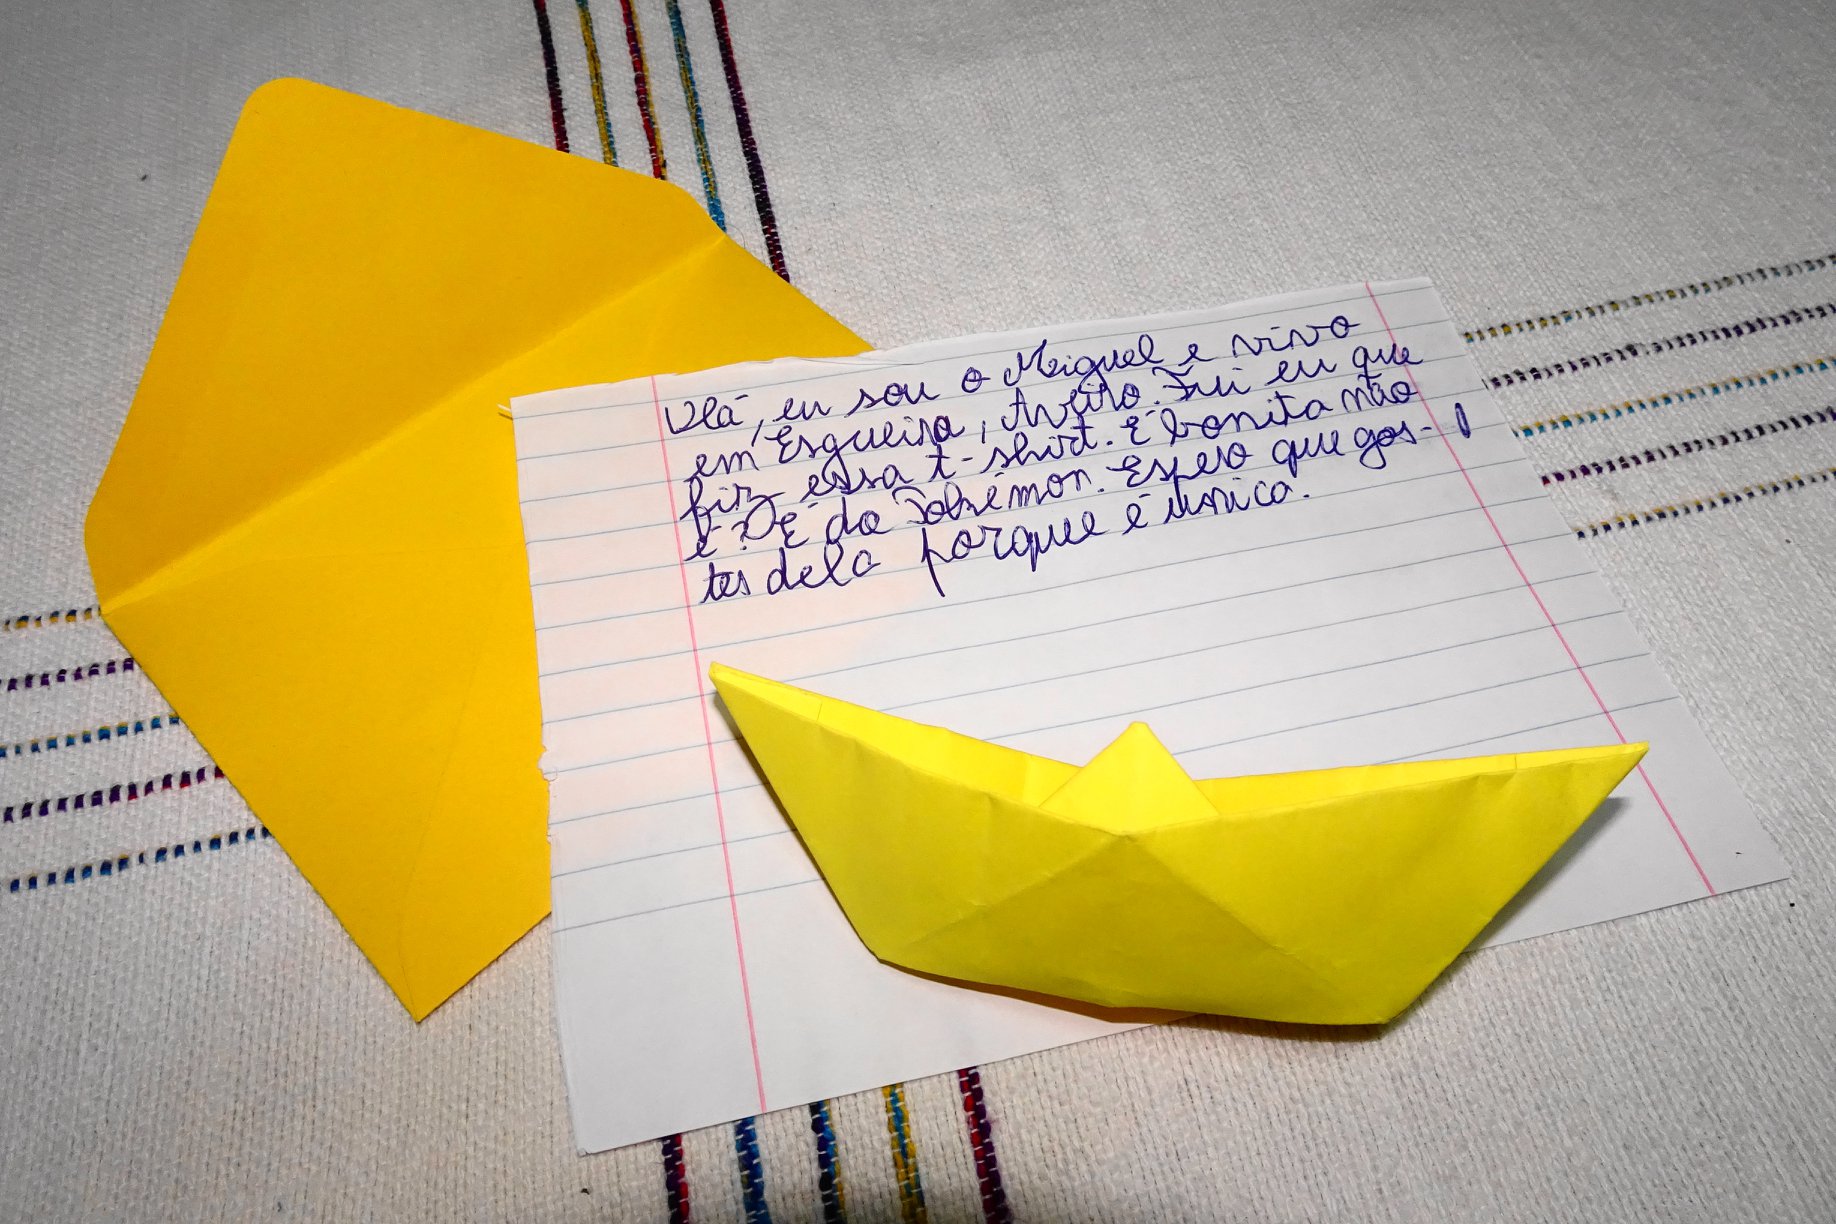 Olá, eu sou o Miguel e vivo
em Esgueira, Aveiro. Fui eu que
fiz essa t-shirt. É bonita não
é? É do Pokémon. Espero que gos-
tes dela porque é única.